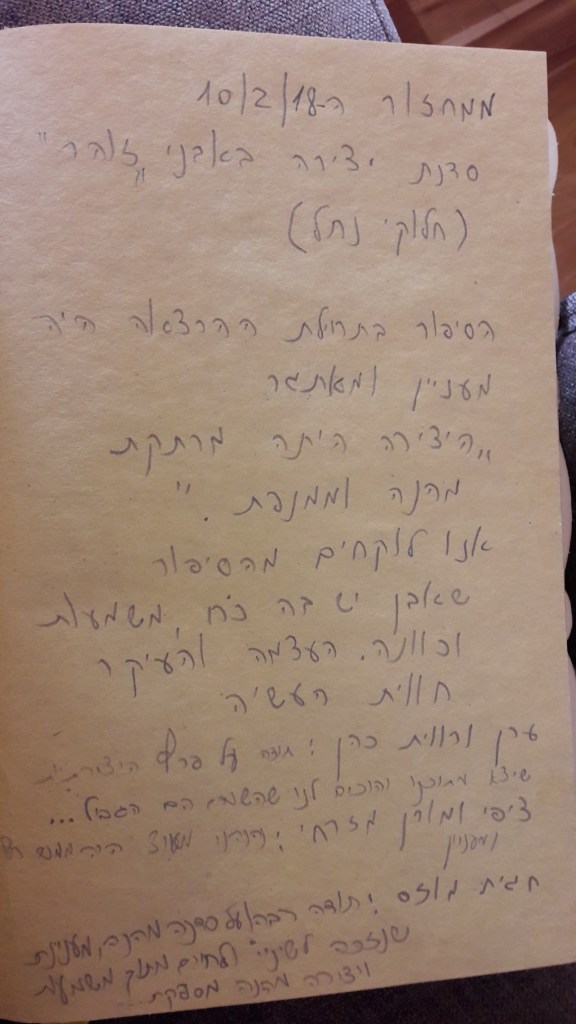 ממחזור ה-10/2/18
סדנת יצירה באבני "זוהר"
(חלוקי נחל)
הסיפור בתחילת ההרצאה היה
מעניין ומאתגר
"היצירה היתה מרתקת
מהנה וממנפת."
אנו לוקחים מהסיפור
שאבן יש בה כח, משמעות
וכוונה. העצמה והעיקר
חווית העשיה
ערן ורווית כהן: תודה על פרץ היצירתיות
שיצא מתוכנו והוכיח לנו שהשמים הם הגבול...
ציפי ומורן מזרחי: נהננו מאוד היה ממש
ומעניין
חגית: תודה רבה על סדנה מהנה, מעניינת
שנזכה לשינוי ולחיים מתוך משמעות
ויצירה מהנה מספקת